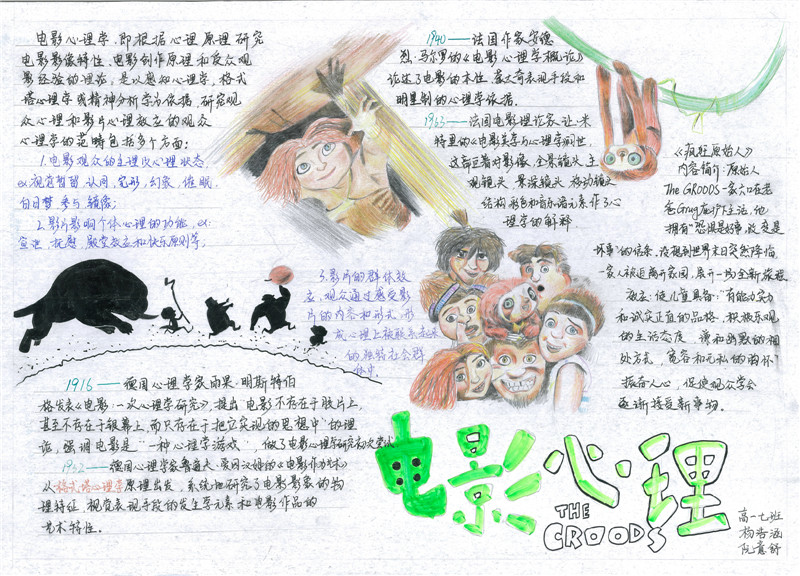 电影心理学,即根据心理原理研究
电影影像特性、电影创作原理和受众观
影经验的理论,是以感知心理学、格式
塔心理学或精神分析学为依据,研究观
众心理和影片心理效应的观众
心理学的范畴包括多个方面:
1.电影观众的主理以心理状态
α.视觉暂留、认同、完形、幻象、催眠、
白日梦、参与、镜像;
2.影片影响个体心理的功能,α:
宣泄、抚慰、殿堂效应和快乐原则等;
3.影片的群体效
应:观众通过感受影
片的内容和形式,形
成心理上被联系起来
的独特社会群
体中
1916——德国心理学家雨果·明斯特伯
格发表《电影:一次心理学研究》,提出"电影不存在于胶片上,
甚至不存在于银幕上,而只存在于把它实现的思想中"的理
论,强调电影是"一种心理学游戏",做了电影心理学研究初次尝试
1932——德国心理学家鲁道夫·爱因汉姆的《电影作为艺术》
从格式塔心理学原理出发,系统地研究了电影影象的物
理特征、视觉表现手段的发生学元素和电影作品的
艺术特性。
1940——法国作家安德
烈·马尔罗的《电影心理学概论》
论述了电影的本性、蒙太奇表现手段和
明星制的心理学依据。
1963——法国电影理论家让·米
特里的《电影美学与心理学》问世,
这部巨著对影像、全景镜头、主
观镜头、景深镜头、移动镜头、
结构、彩色和音乐诸元素作了心
理学的解释
《疯狂原始人》
内容简介:原始人
The CROODS一家六口在老
爸Grug庇护下生活,他
拥有"恐惧是好事,改变是
坏事"的信条,没想到世界末日突然降临
一家人被迫离开家园,展开一场全新旅程
观点:使儿童具备:"有能力实力
和诚实正直的品格、积极乐观
的生活态度、谦和幽默的相
处方式,宽容和无私的胸怀"
振奋人心,促使观众学会
逐渐接受新事物。
电影心理
THE
CROODS
高一七班
杨浩涵
阮意舒